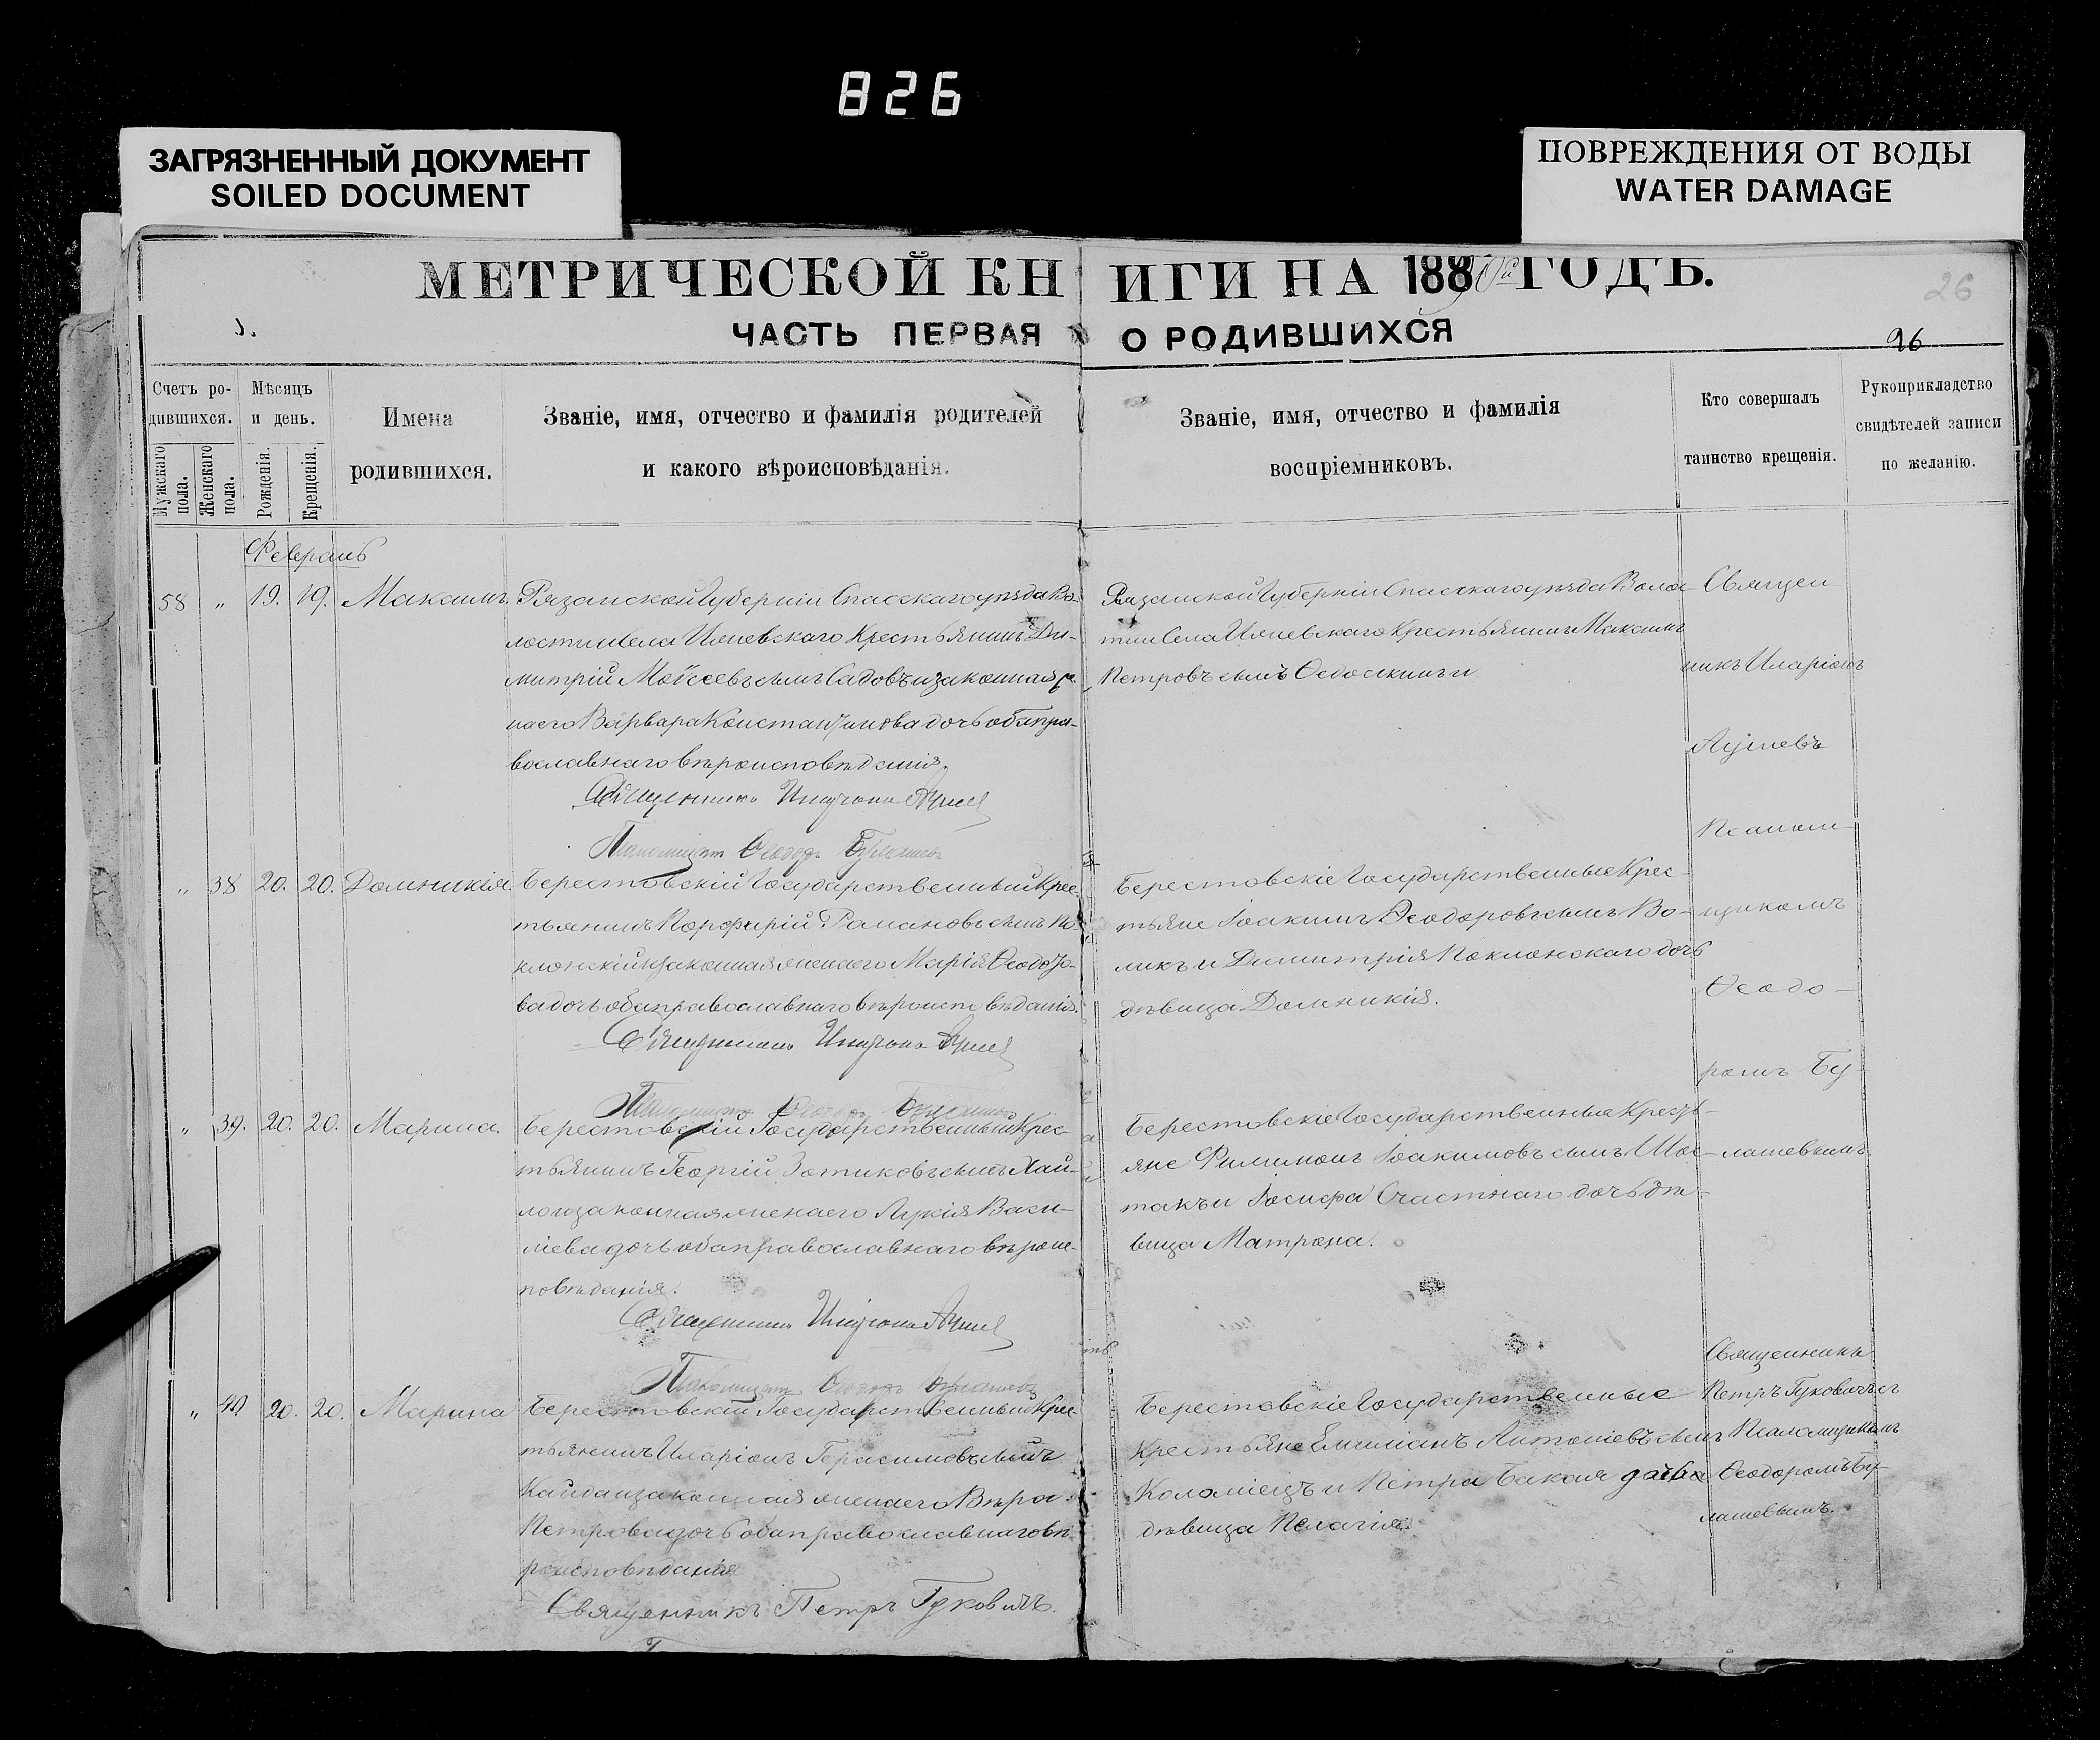 826
ЗАГРЯЗНЕННЫЙ ДОКУМЕНТ
SOILED DOCUMENT
ПОВРЕЖДЕНИЯ ОТ ВОДЫ
WATER DAMAGE
МЕТРИЧЕСКОЙ КНИГИ НА 188 ГОДЪ.
26
ЧАСТЬ ПЕРВАЯ О РОДИВШИХСЯ
96
Счетъ ро-
дившихся.
Мужскаго пола.
Женскаго пола.
Мѣсяцъ
и день.
Рожденія.
Крещенія.
Имена
родившихся.
Званіе, имя, отчество и фамилія родителей
и какого вѣроисповѣданія.
Званіе, имя, отчество и фамилія
воспріемниковъ.
Кто совершалъ
таинство крещенія.
Рукоприкладство
свидѣтелей записи
по желанію.
Февраль
58 " 19. 19. Максимъ.
Рязанской Губерніи Спасскаго уѣзда Во-
лости Села Ижевскаго Крестьянинъ Ди-
митрій Моѵсеевъ сынъ Садовъ и законная же-
на его Варвара Константинова дочь оба пра-
вославнаго вѣроисповѣданія.
Священникъ Иларіонъ
Псаломщикъ Ѳеодоръ Булашевъ
Рязанской Губерніи Спасскаго уѣзда Воло-
сти Села Ижевскаго Крестьянинъ Максимъ
Петровъ сынъ Ѳедоскинъ и
Священ
никъ Иларіонъ
Псалом-
щикомъ
Ѳеодо-
ромъ Бу-
лашевымъ.
" 38 20. 20. Домникія.
Берестовскій Государственный Крес-
тьянинъ Порфирій Романовъ сынъ По-
клонскій и законная жена его Марія Ѳеодоро-
ва дочь оба православнаго вѣроисповѣданія.
Священникъ Иларіонъ
Псаломщикъ Ѳеодоръ Булашевъ
Берестовскіе Государственные Крес-
тьяне Іоакимъ Ѳеодоровъ сынъ Во-
ликъ и Димитрія Поклонскаго дочь
дѣвица Домникія.
" 39. 20. 20. Марина.
Берестовскій Государственный Крес-
тьянинъ Георгій Зотиковъ сынъ Хай-
ло и законная жена его Лукія Васи-
ліева дочь оба православнаго вѣроис-
повѣданія.
Священникъ Иларіонъ
Псаломщикъ Ѳеодоръ Булашевъ
Берестовскіе Государственные Кресть-
яне Филимонъ Іоакимовъ сынъ Шос-
такъ и Іосифа Счастнаго дочь дѣ-
вица Матрона.
" 40 20. 20. Марина
Берестовскій Государственный Крес-
тьянинъ Иларіонъ Герасимовъ сынъ
Кайдан и законная жена его Вѣра
Петрова дочь оба православнаго вѣ-
роисповѣданія
Священникъ Петръ Гуковичъ.
Берестовскіе Государственные
Крестьяне Емиліанъ Антоніевъ сынъ
Коломіецъ и Петра Бакая дочь
дѣвица Пелагія.
Священникъ
Петръ Гуковичъ съ
Псаломщикомъ
Ѳеодоромъ Бу-
лашевымъ.